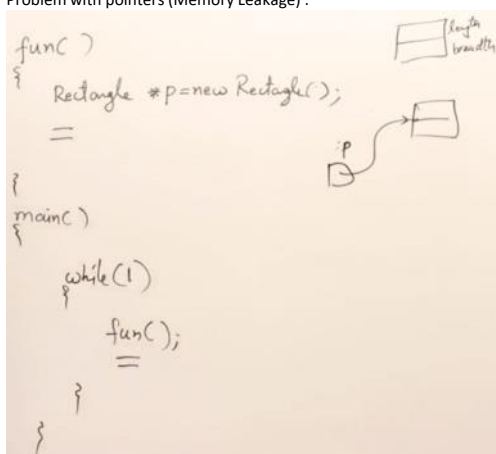 Problem with pointers (Memory Leakage) :
fun( )
{
Rectangle *p=new Rectagle();
}
main( )
{
while(1)
{
fun();
}
}
length
breadth
p